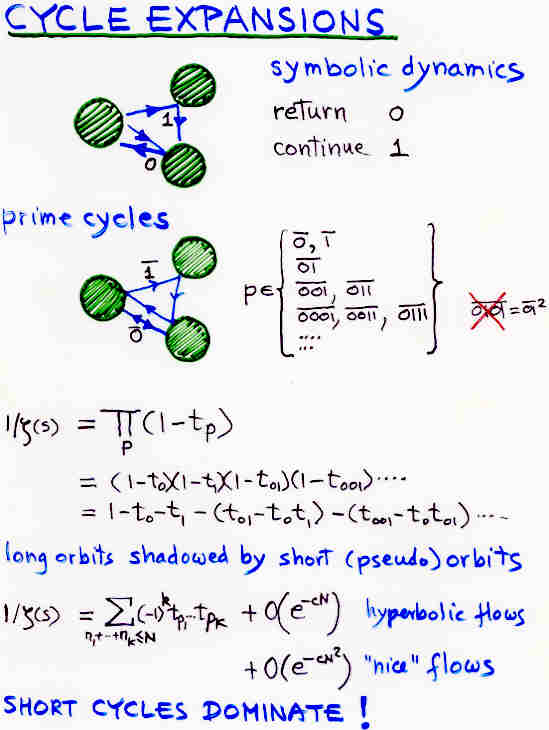 CYCLE EXPANSIONS
symbolic dynamics
return 0
continue 1
1
0
prime cycles
1̅
0̅
p ∈ { 0̅, 1̅
0̅1̅
0̅0̅1̅, 0̅1̅1̅
0̅0̅0̅1̅, 0̅0̅1̅1̅, 0̅1̅1̅1̅
.... }
0̅1̅0̅1̅ = 0̅1̅²
1/ζ(s) = ∏_p (1-t_p)
= (1-t₀)(1-t₁)(1-t₀₁)(1-t₀₀₁)....
= 1-t₀-t₁-(t₀₁-t₀t₁)-(t₀₀₁-t₀t₀₁)....
long orbits shadowed by short (pseudo) orbits
1/ζ(s) = ∑_{n₁+···+n_k≤N} (-1)^k t_{p₁}...t_{p_k} + O(e^{-cN}) hyperbolic flows
+ O(e^{-cN²}) "nice" flows
SHORT CYCLES DOMINATE !